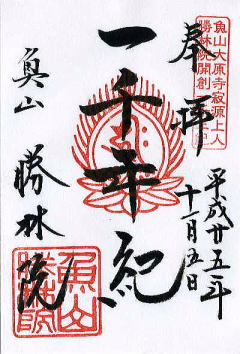 奉拝
魚山大原寺寂源上人
勝林院開創
平成廿五年
十一月五日
一千年紀
魚山
勝林院
魚山
勝林院